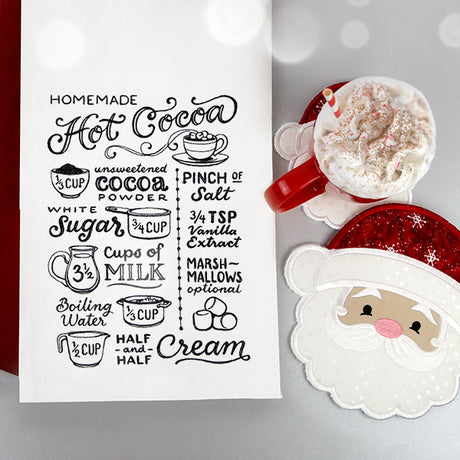 HOMEMADE
Hot Cocoa
1/3 CUP
unsweetened
COCOA
POWDER
WHITE
Sugar
3/4 CUP
3 1/2
Cups of
MILK
Boiling
Water
1/3 CUP
1/2 CUP
HALF
-and-
HALF
Cream
PINCH OF
Salt
3/4 TSP
Vanilla
Extract
MARSH-
MALLOWS
optional